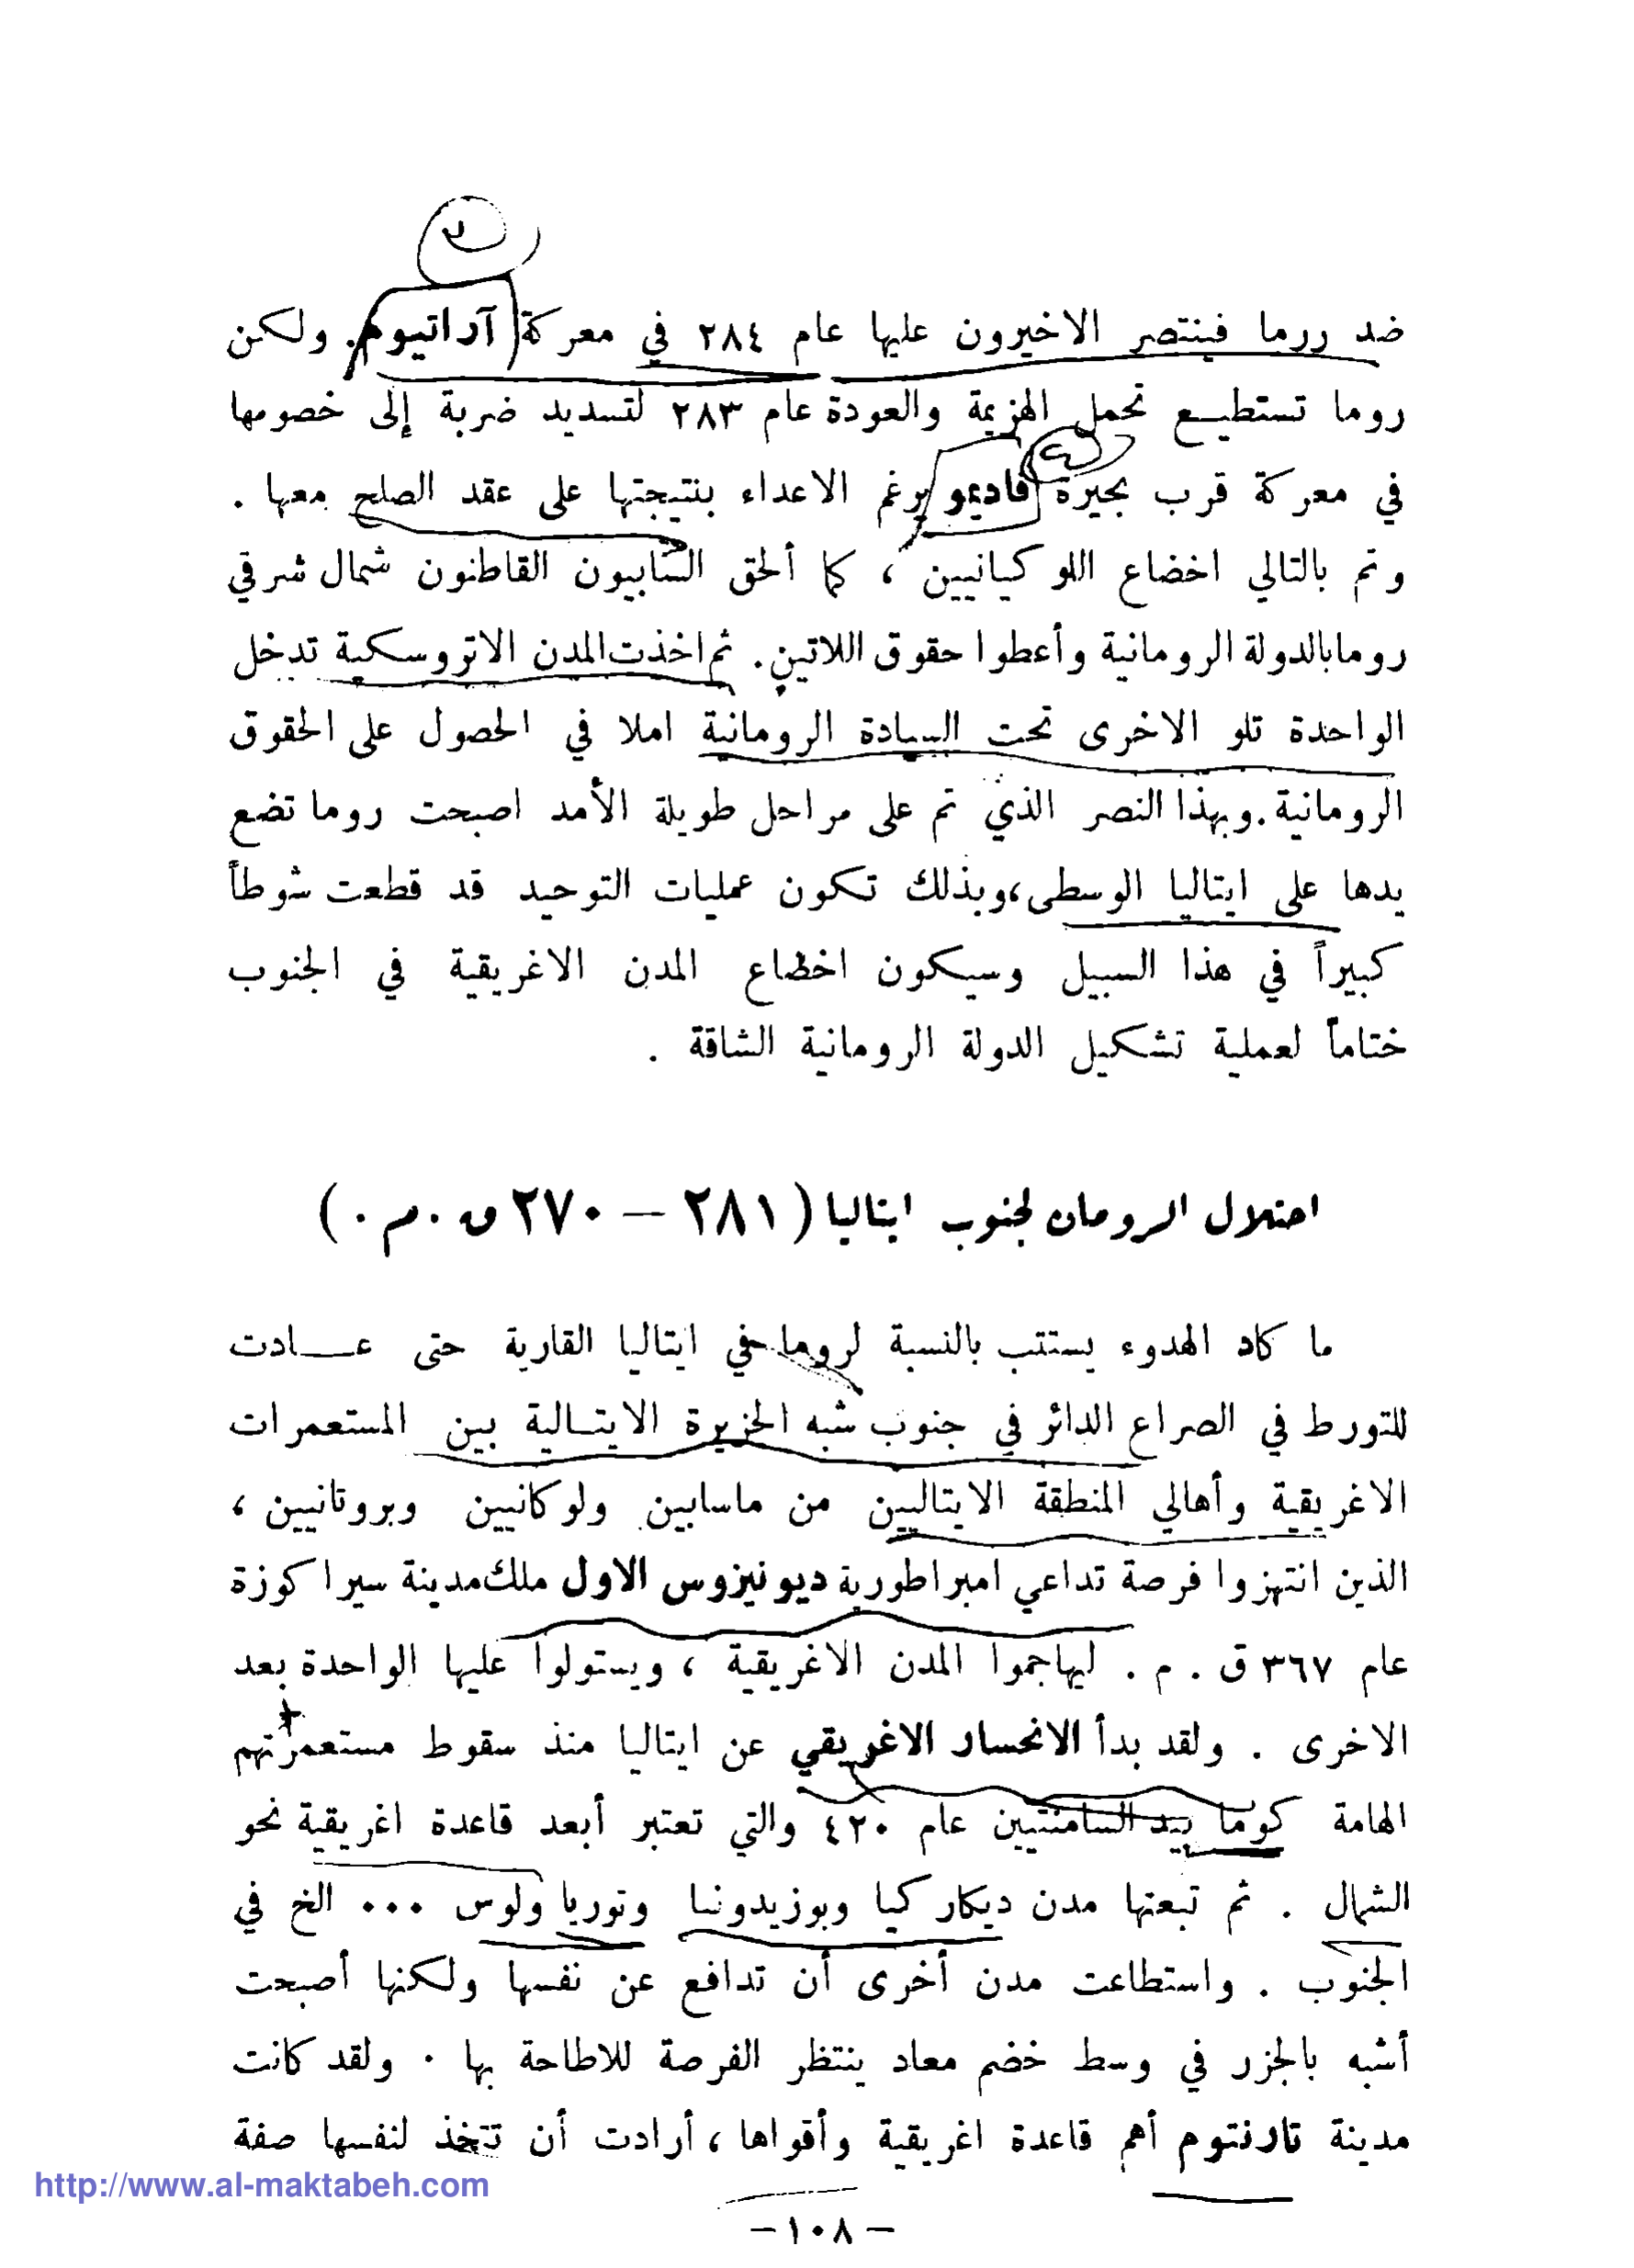 ضد ررما فينتصر الاخيرون عليها عام ٢٨٤ في معركة آراتيوم. ولكن
روما تستطيع تحمل الهزيمة والعودة عام ٢٨٣ لتسديد ضربة إلى خصومها
في معركة قرب بحيرة فاديمو يرغم الاعداء بنتيجتها على عقد الصلح معها .
وتم بالتالي اخضاع اللوكيانيين ، كما ألحق السابيون القاطنون شمال شرقي
روما بالدولة الرومانية وأعطوا حقوق اللاتين. ثم اخذت المدن الاتروسكية تدخل
الواحدة تلو الاخرى تحت السيادة الرومانية املا في الحصول على الحقوق
الرومانية. وبهذا النصر الذي تم على مراحل طويلة الأمد اصبحت روما تضع
يدها على ايتاليا الوسطى، وبذلك تكون عمليات التوحيد قد قطعت شوطاً
كبيراً في هذا السبيل وسيكون اخضاع المدن الاغريقية في الجنوب
ختاماً لعملية تشكيل الدولة الرومانية الشاقة .
احتلال الرومان لجنوب ايتاليا ( ٢٨١ – ٢٧٠ ق . م . )
ما كاد الهدوء يستتب بالنسبة لروما في ايتاليا القارية حتى عــادت
للتورط في الصراع الدائر في جنوب شبه الجزيرة الايتـالية بين المستعمرات
الاغريقية وأهالي المنطقة الايتاليين من ماسابين ولوكانيين وبروتانيين ،
الذين انتهزوا فرصة تداعي امبراطورية ديونيزوس الاول ملك مدينة سيراكوزة
عام ٣٦٧ ق . م . ليهاجموا المدن الاغريقية ، ويستولوا عليها الواحدة بعد
الاخرى . ولقد بدأ الانحسار الاغريقي عن ايتاليا منذ سقوط مستعمرتهم
الهامة كوما بيد السامنتيين عام ٤٢٠ والتي تعتبر أبعد قاعدة اغريقية نحو
الشمال . ثم تبعتها مدن ديكاركيا وبوزيدونيا وتوريا ولوس ... الخ في
الجنوب . واستطاعت مدن أخرى أن تدافع عن نفسها ولكنها أصبحت
أشبه بالجزر في وسط خضم معاد ينتظر الفرصة للاطاحة بها . ولقد كانت
مدينة تارنتوم أهم قاعدة اغريقية وأقواها ، أرادت أن تتخذ لنفسها صفة
http://www.al-maktabeh.com
– ١٠٨ –